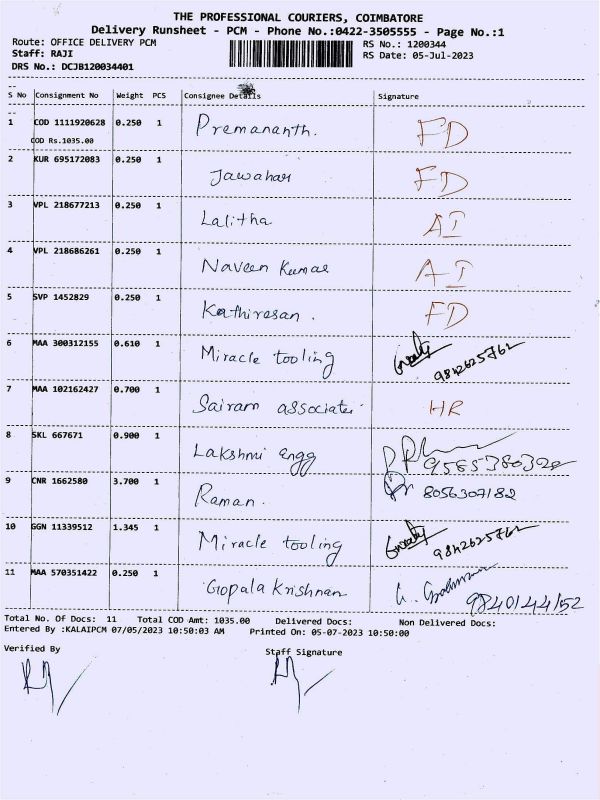 THE PROFESSIONAL COURIERS, COIMBATORE
Delivery Runsheet - PCM - Phone No.:0422-3505555 - Page No.:1
Route: OFFICE DELIVERY PCM RS No.: 1200344
Staff: RAJI RS Date: 05-Jul-2023
DRS No.: DCJB120034401
S No Consignment No Weight PCS Consignee Details Signature
1 COD 1111920628 0.250 1 Premananth. FD
COD Rs.1035.00
2 KUR 695172083 0.250 1 Jawahar FD
3 VPL 218677213 0.250 1 Lalitha AI
4 VPL 218686261 0.250 1 Naveen Kumar AI
5 SVP 1452829 0.250 1 Kathiresan. FD
6 MAA 300312155 0.610 1 Miracle tooling 9842625762
7 MAA 102162427 0.700 1 Sairam associates HR
8 SKL 667671 0.900 1 Lakshmi engg
9 CNR 1662580 3.700 1 Raman. 8056307182
10 GGN 11339512 1.345 1 Miracle tooling 9842625762
11 MAA 570351422 0.250 1 Gopala Krishnan 9840144152
Total No. Of Docs: 11 Total COD Amt: 1035.00 Delivered Docs: Non Delivered Docs:
Entered By :KALAIPCM 07/05/2023 10:50:03 AM Printed On: 05-07-2023 10:50:00
Verified By Staff Signature